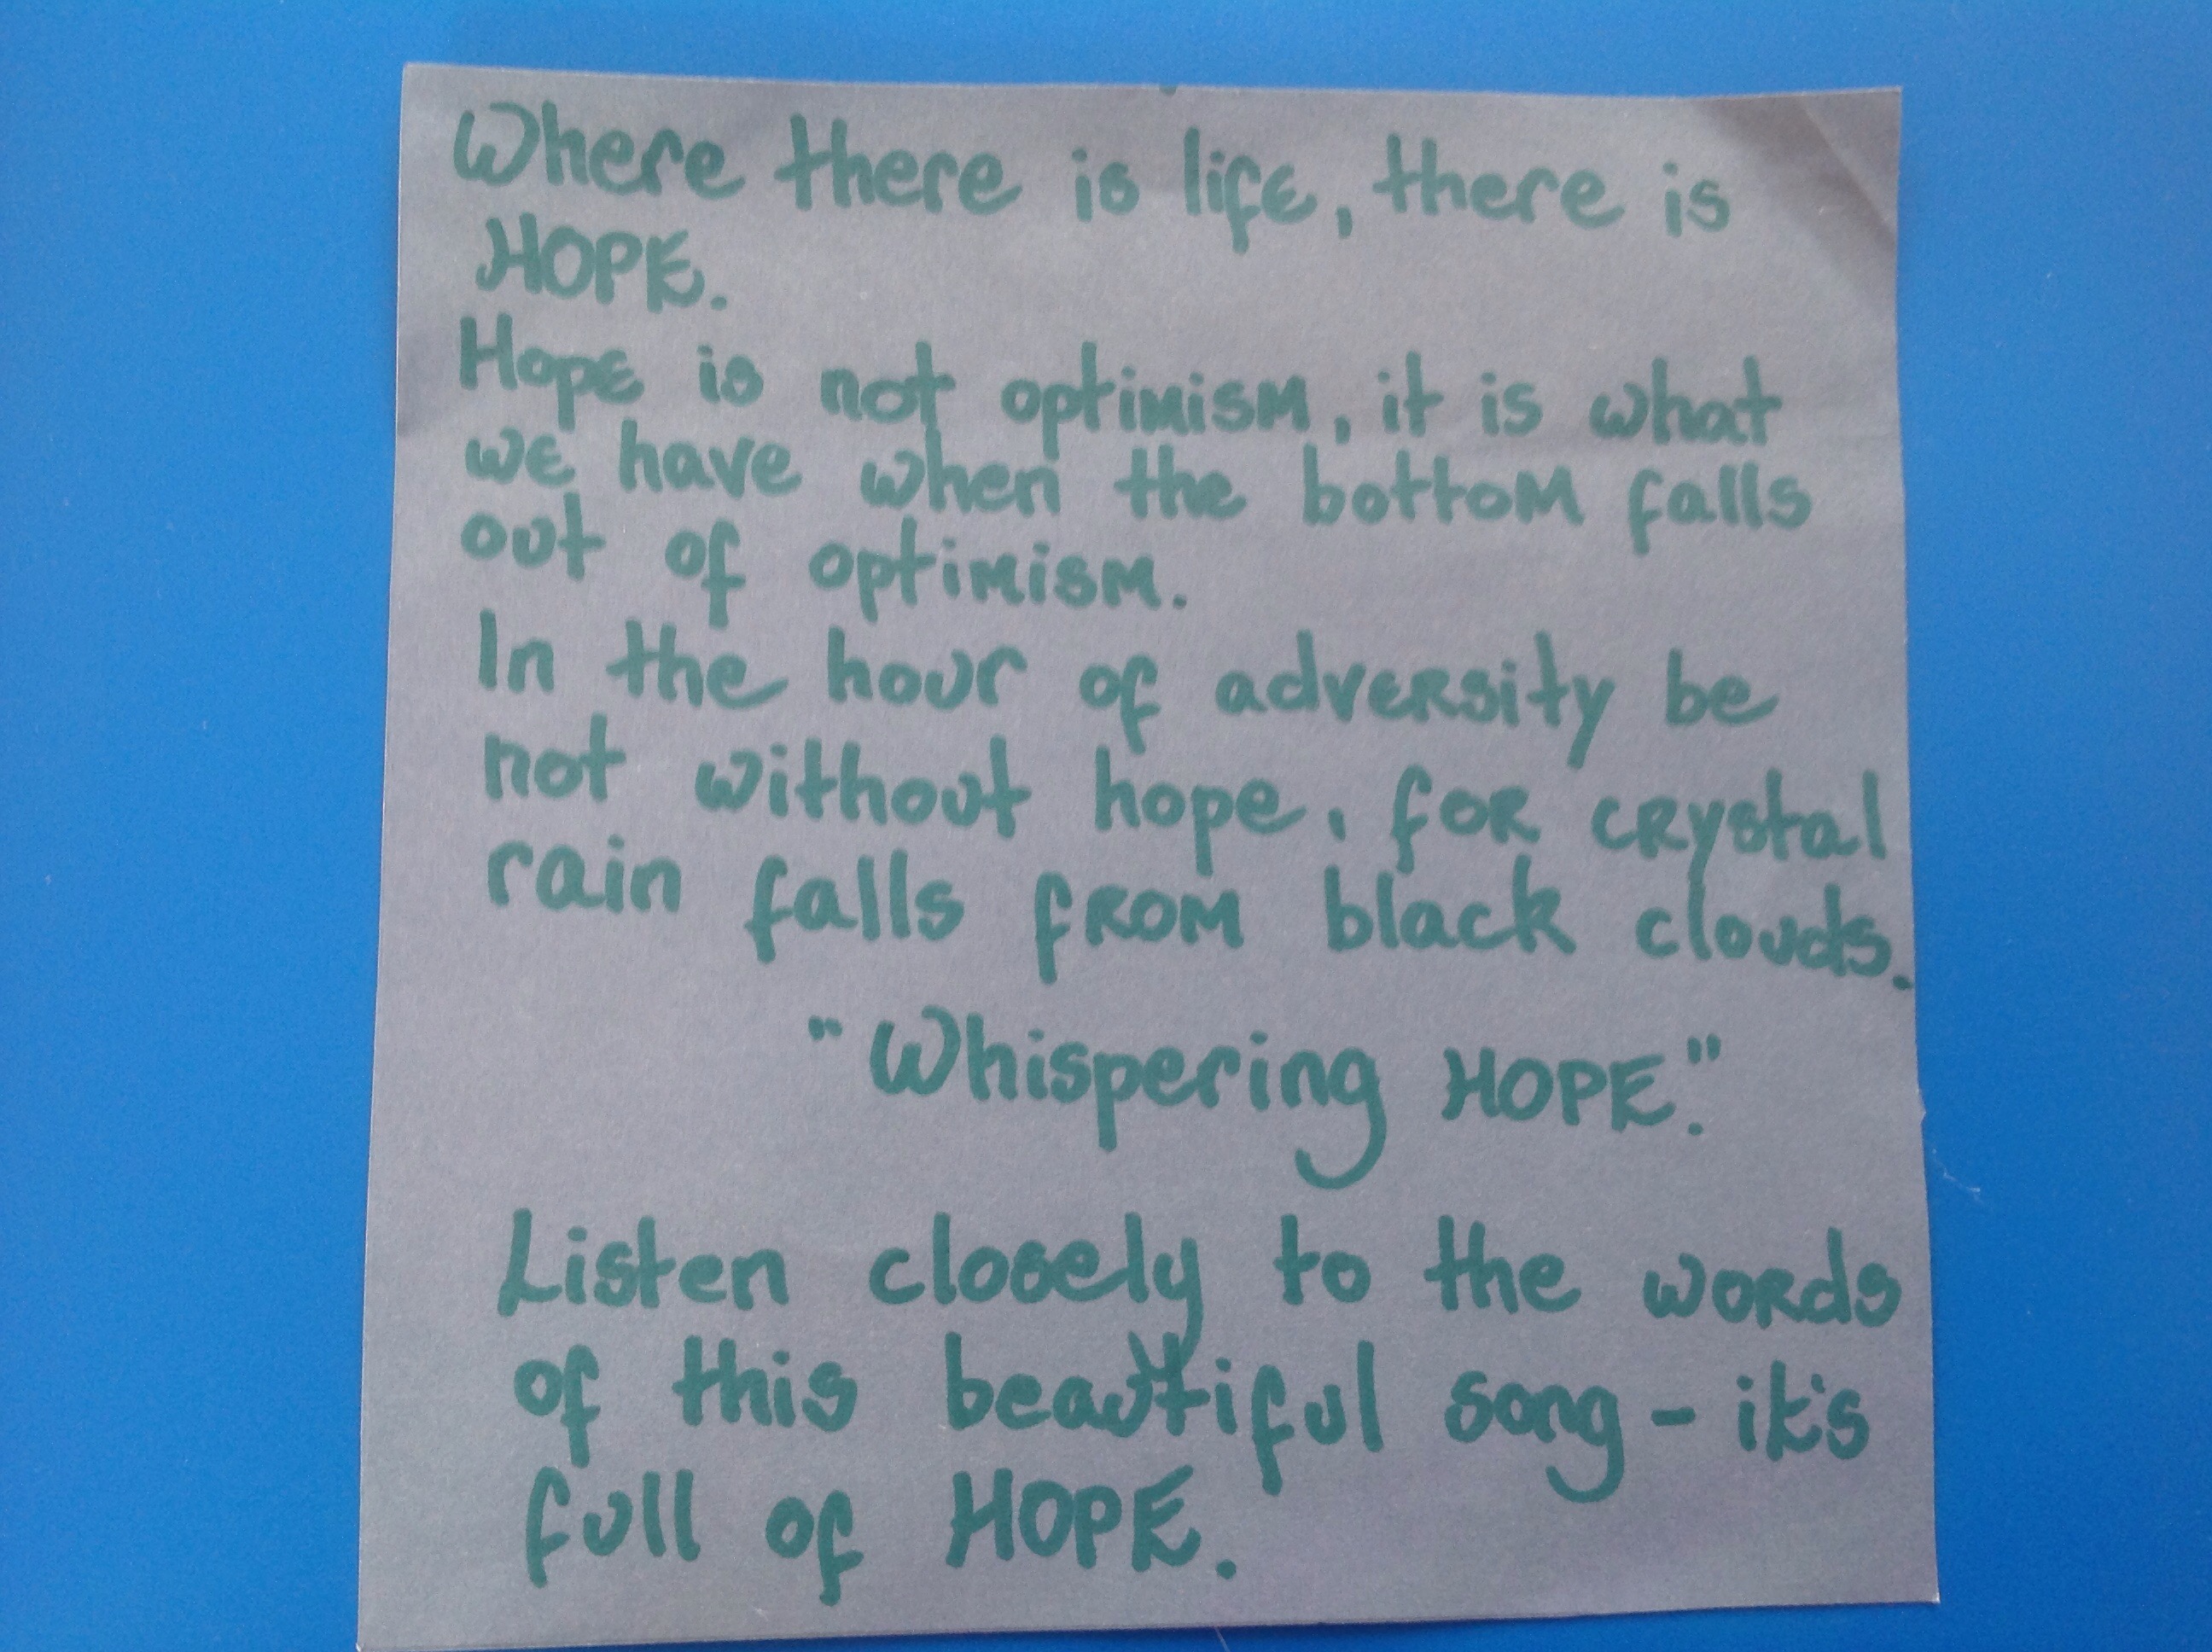 Where there is life, there is
HOPE.
Hope is not optimism, it is what
we have when the bottom falls
out of optimism.
In the hour of adversity be
not without hope, for crystal
rain falls from black clouds.
"Whispering HOPE."
Listen closely to the words
of this beautiful song - it's
full of HOPE.